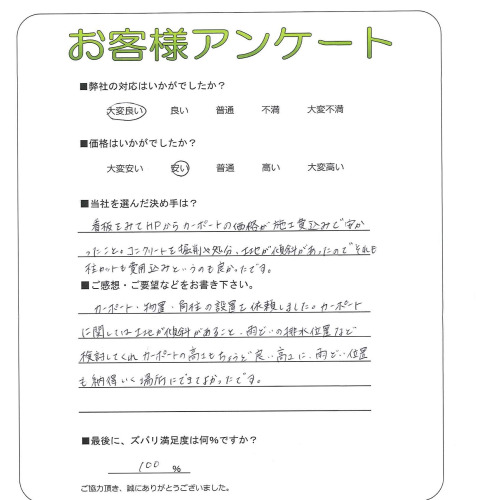 お客様アンケート
■弊社の対応はいかがでしたか？
大変良い 良い 普通 不満 大変不満
■価格はいかがでしたか？
大変安い 安い 普通 高い 大変高い
■当社を選んだ決め手は？
看板をみてHPからカーポートの価格が施工費込みで安か
ったこと。コンクリートを掘削や処分、土地が傾斜があったのでそれも
柱カットも費用込みというのも良かったです。
■ご感想・ご要望などをお書き下さい。
カーポート・物置・角柱の設置を依頼しました。カーポート
に関しては土地が傾斜があること、雨どいの排水位置など
検討してくれカーポートの高さもちょうど良い高さに、雨どい位置
も納得いく場所にできてよかったです。
■最後に、ズバリ満足度は何％ですか？
100 ％
ご協力頂き、誠にありがとうございました。